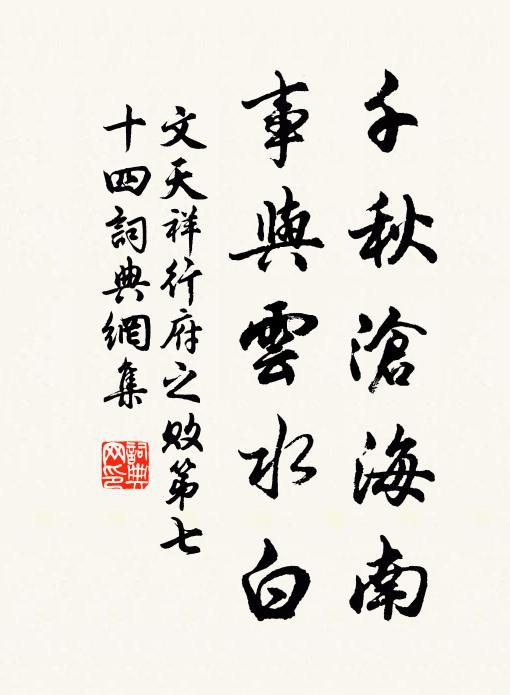 千秋滄海南
事與雲水白
文天祥行府之敗第七
十四詞典網集
詞典網印